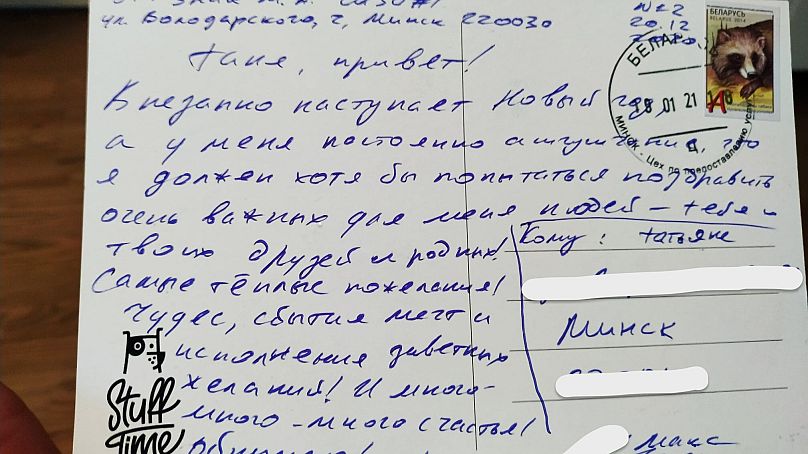 ул. Володарского, 2, Минск 220030
№2
20.12
Таня, привет!
Внезапно наступает Новый год,
а у меня постоянно ощущение, что
я должен хотя бы попытаться поздравить
очень важных для меня людей – тебя и
твоих друзей и родных!
Самые тёплые пожелания!
Чудес, сбытия мечт и
исполнения заветных
желаний! И много-
много-много счастья!
Кому: Татьяне
Минск
Макс
БЕЛАРУСЬ
BELARUS 2014
A
БЕЛАРУСЬ
01 21
МИНСК - Цех по предоставлению услуг
Stuff
Time